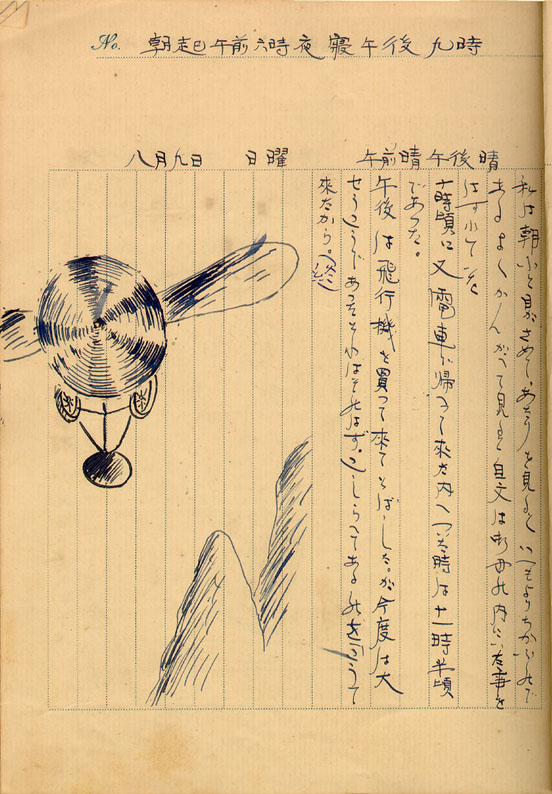 No. 朝起午前六時夜寢午後九時
八月九日 日曜 午前晴午後晴
私は朝ふと目がさめて、あたりを見ると いつもよりちがふので
あるよくかんがへて見ると自文は 母の内に た事を
はすれてゐた
十時頃に又電車に帰つて来た内へつゐた時は十一時半頃
であつた。
午後は飛行機を買つて来てとばした。が今度は大
せうこうであつたそれはそのはず。こしらへてあるのを うて
來たから。(終)